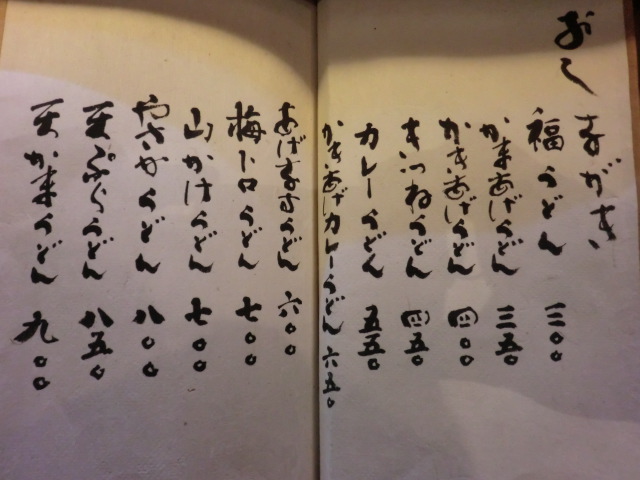 おしながき
福うどん 三〇〇
かまあげうどん 三五〇
かきあげうどん 四〇〇
きつねうどん 四五〇
カレーうどん 五五〇
かきあげカレーうどん 六五〇
あげなすうどん 六〇〇
梅トロうどん 七〇〇
山かけうどん 七〇〇
やさいうどん 八〇〇
天ぷらうどん 八五〇
天かまうどん 九〇〇